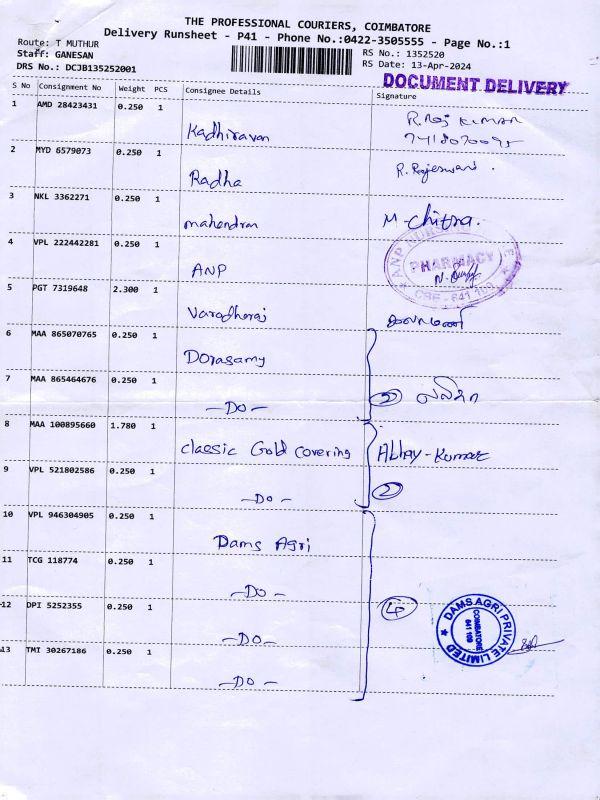 THE PROFESSIONAL COURIERS, COIMBATORE
Delivery Runsheet - P41 - Phone No.:0422-3505555 - Page No.:1
Route: T MUTHUR
Staff: GANESAN
DRS No.: DCJB135252001
RS No.: 1352520
RS Date: 13-Apr-2024
DOCUMENT DELIVERY
S No Consignment No Weight PCS Consignee Details Signature
1 AMD 28423431 0.250 1 Kadhiravan R. Raj Kumar
2 MYD 6579073 0.250 1 Radha R. Rajeswari.
3 NKL 3362271 0.250 1 mahendran M-Chitra.
4 VPL 222442281 0.250 1 ANP
PHARMACY
CBE - 641 109
5 PGT 7319648 2.300 1 Varadharaj
6 MAA 865070765 0.250 1 Dorasamy
7 MAA 865464676 0.250 1 -Do- 2
8 MAA 100895660 1.780 1 classic Gold covering Abhay-Kumar
9 VPL 521802586 0.250 1 -Do- 2
10 VPL 946304905 0.250 1 Dams Agri
11 TCG 118774 0.250 1 -Do-
12 DPI 5252355 0.250 1 -Do- 4
13 TMI 30267186 0.250 1 -Do-
DAMS AGRI PRIVATE LIMITED
COIMBATORE
641 109